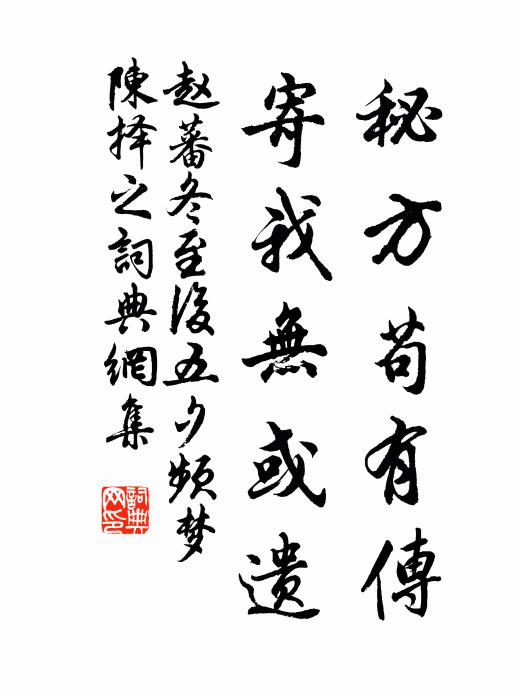 秘方苟有傳
寄我無或遺
赵蕃冬至後五夕频梦
陳择之詞典網集
詞典网印